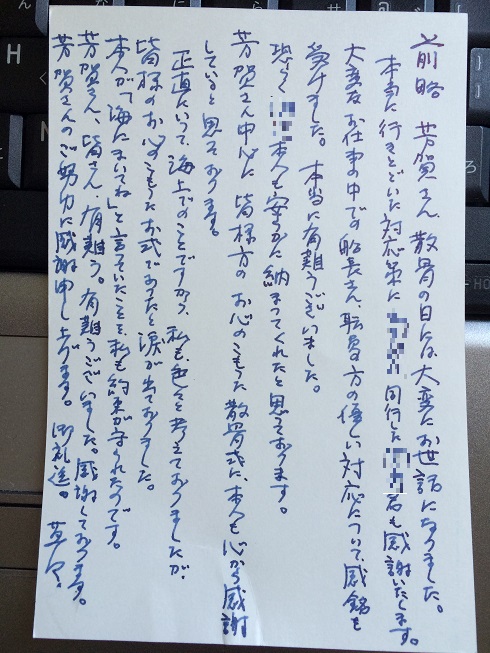 前略 芳賀さん、散骨の日には、大変にお世話になりました。
本当に行きとどいた対応策に 同行した 名も感謝いたします。
大変なお仕事の中での船長さん、職員方の優しい対応について、感銘を
受けました。本当に有難うございました。
恐らく 本人も安らかに納まってくれたと思っております。
芳賀さん中心に皆様方のお心のこもった散骨式に、本人も心から感謝
していると思っております。
正直にいって、海上でのことですから、私も色々と考えておりましたが、
皆様のお心のこもったお式であったと涙が出ておりました。
本人が「海にまいてね」と言っていたことを、私も約束が守られたのです。
芳賀さん、皆さん、有難う。有難うございました。感謝しております。
芳賀さんのご努力に感謝申し上げます。御礼迄。草々。